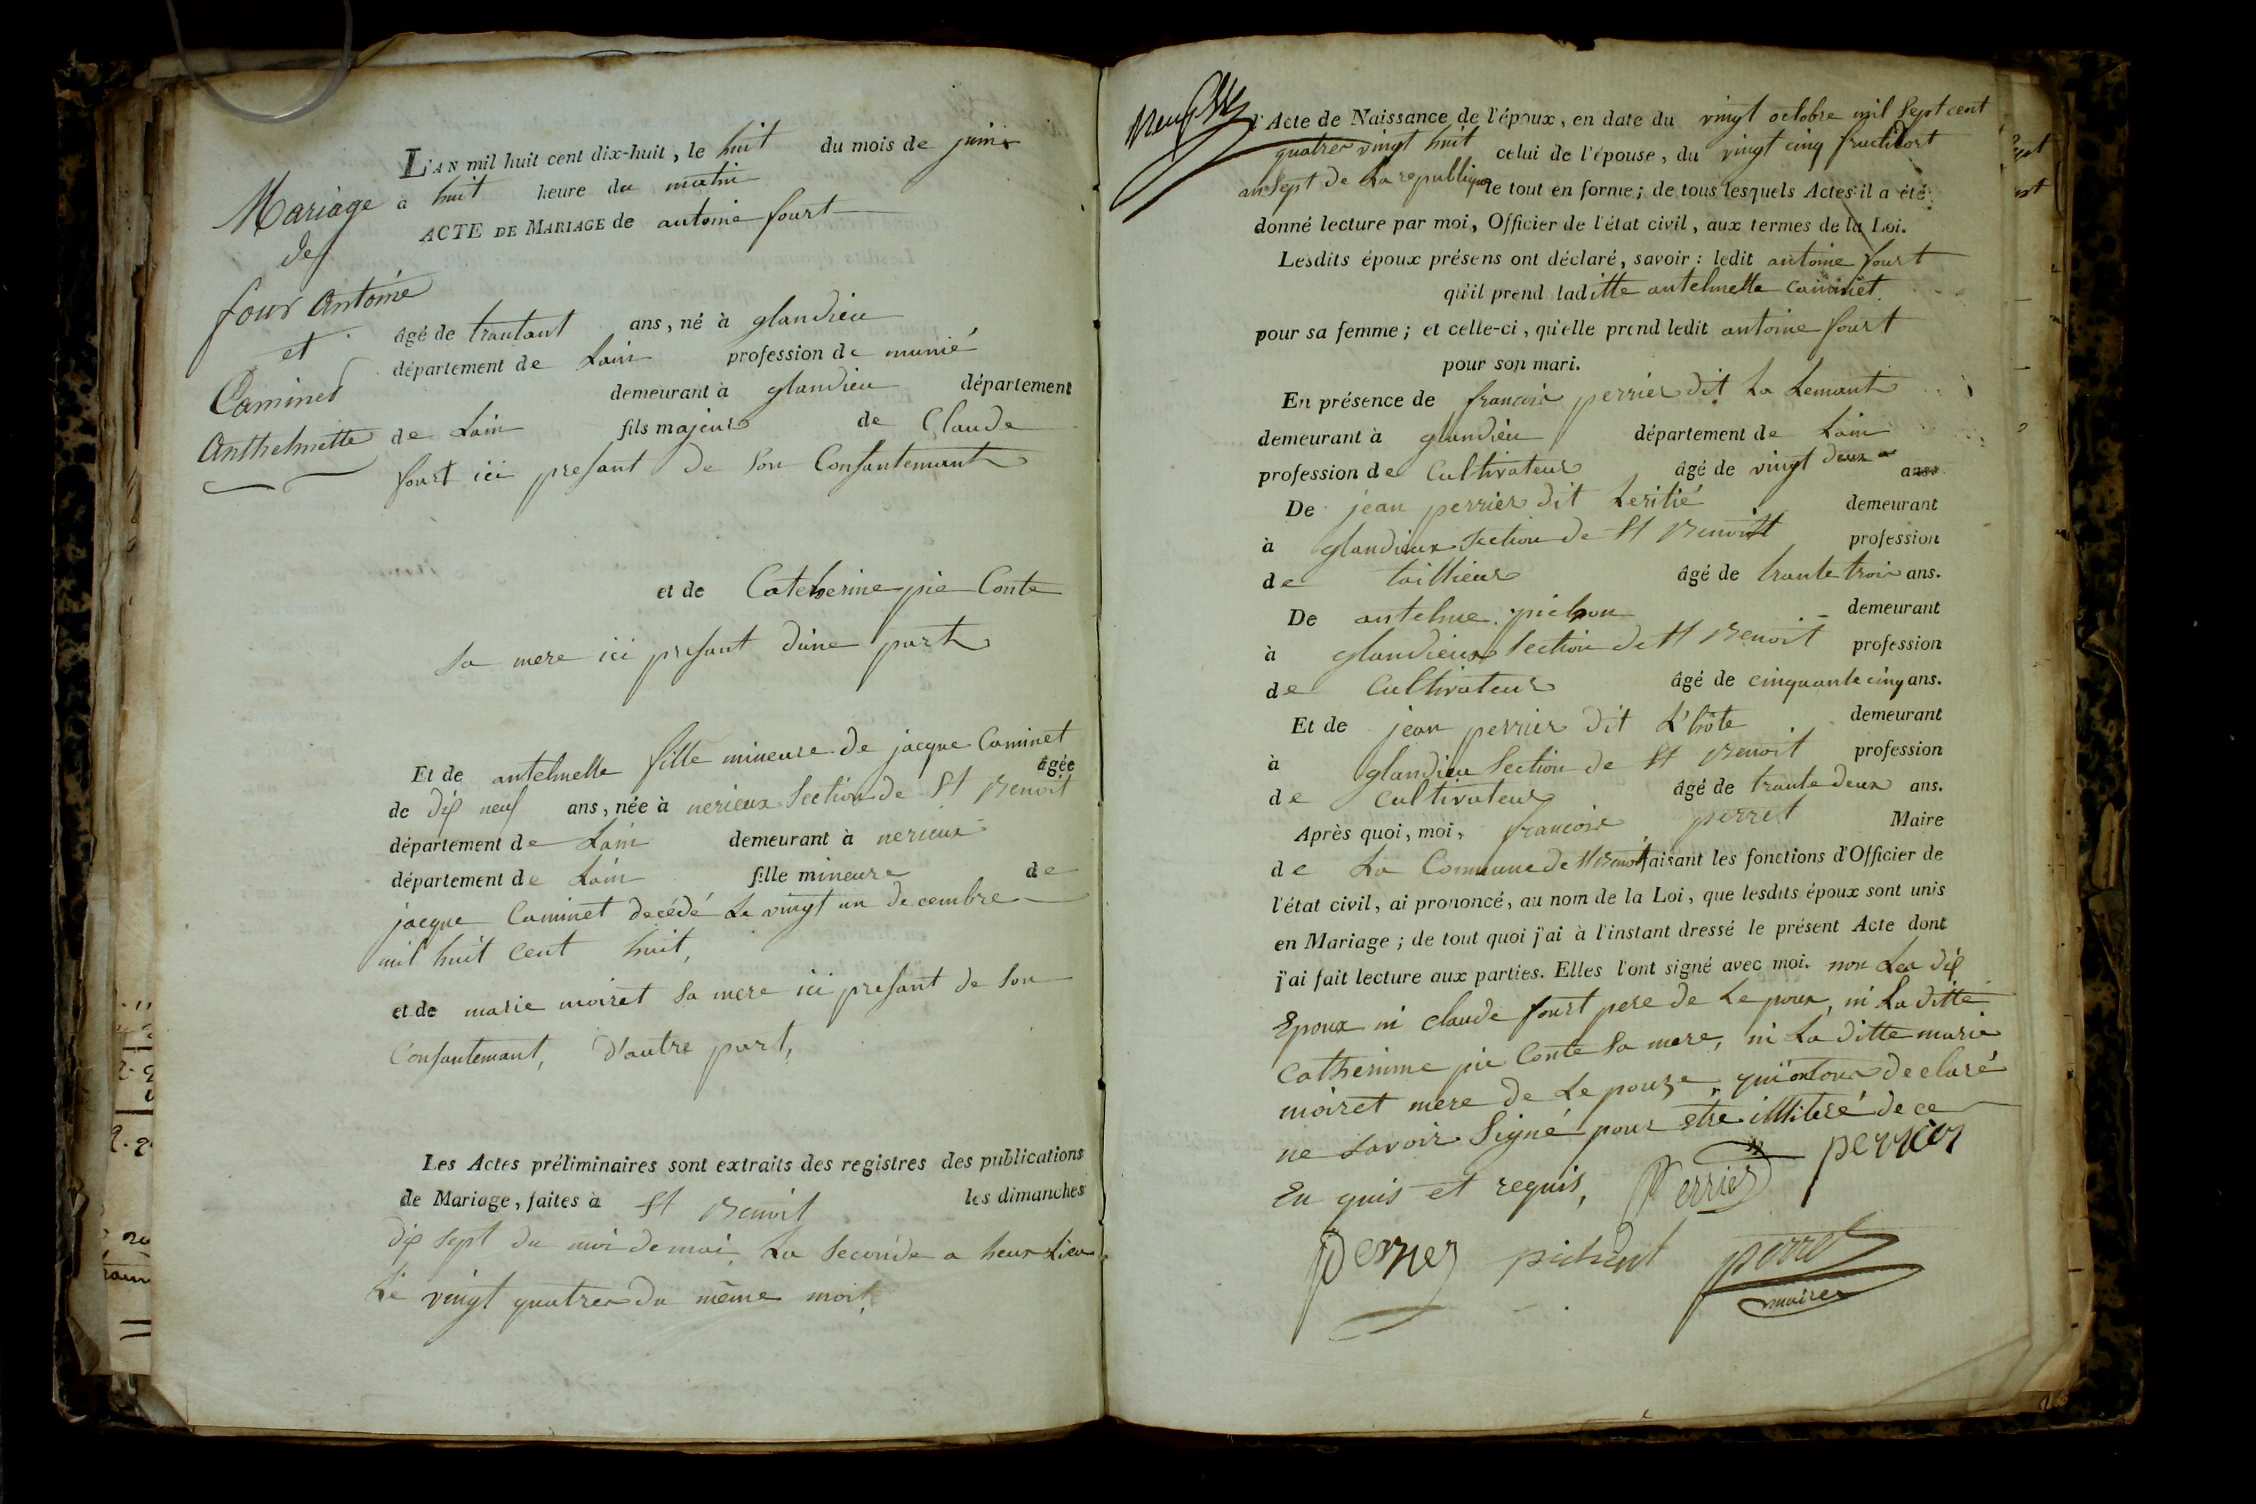 Mariage
de
four Antoine
et
Caminet
Anthelmette
L'AN mil huit cent dix-huit, le huit du mois de juin
à huit heure du matin
ACTE DE MARIAGE de antoine fourt
âgé de trantant ans, né à glandieu
département de Lain profession de munié
demeurant à glandieu département
de Lain fils majeur de Claude
fourt ici presant de son Consantemant
et de Catherine pie Conte
sa mere ici presant d'une part
Et de antelmette fille mineure de jacque Caminet
âgée
de dix neuf ans, née à nerieux Section de St Benoit
département de Lain demeurant à nerieux
département de Lain fille mineure de
jacque Caminet decédé Le vingt un decembre
mil huit cent huit,
et de marie moiret sa mere ici presant de son
Consantemant, d'autre part,
Les Actes préliminaires sont extraits des registres des publications
de Mariage, faites à St Benoit les dimanches
dix sept du moi de mai, La seconde a heux Lieu
Le vingt quatre du même moit,
l'Acte de Naissance de l'époux, en date du vingt octobre mil sept cent
quatre vingt huit celui de l'épouse, du vingt cinq fructidort
an sept de La republique le tout en forme; de tous lesquels Actes il a été
donné lecture par moi, Officier de l'état civil, aux termes de la Loi.
Lesdits époux présens ont déclaré, savoir: ledit antoine fourt
qu'il prend laditte antelmette caminet
pour sa femme; et celle-ci, qu'elle prend ledit antoine fourt
pour son mari.
En présence de francois perrier dit La Lemant
demeurant à glandieu département de Lain
profession de Cultivateur âgé de vingt deux ans
De jean perrier dit Leritié demeurant
à glandieux Section de St Benoit profession
de taillieur âgé de trante trois ans.
De antelme pichon demeurant
à glandieux Section de St Benoit profession
de Cultivateur âgé de cinquante cinq ans.
Et de jean perrier dit L'hôte demeurant
à glandieu Section de St Benoit profession
de Cultivateur âgé de trante deux ans.
Après quoi, moi, francois perret Maire
de La Commune de St Benoit faisant les fonctions d'Officier de
l'état civil, ai prononcé, au nom de la Loi, que lesdits époux sont unis
en Mariage; de tout quoi j'ai à l'instant dressé le présent Acte dont
j'ai fait lecture aux parties. Elles l'ont signé avec moi. non Les dis
Epoux ni claude fourt pere de Lepoux, ni Laditte
Catherinne pie Conte sa mere, ni La ditte marie
moiret mere de Lepouze, qui ont declaré
ne savoir Signé pour etre illiteré de ce
En quis et requis, Perrier perrier
Perrier pichont perret
maire